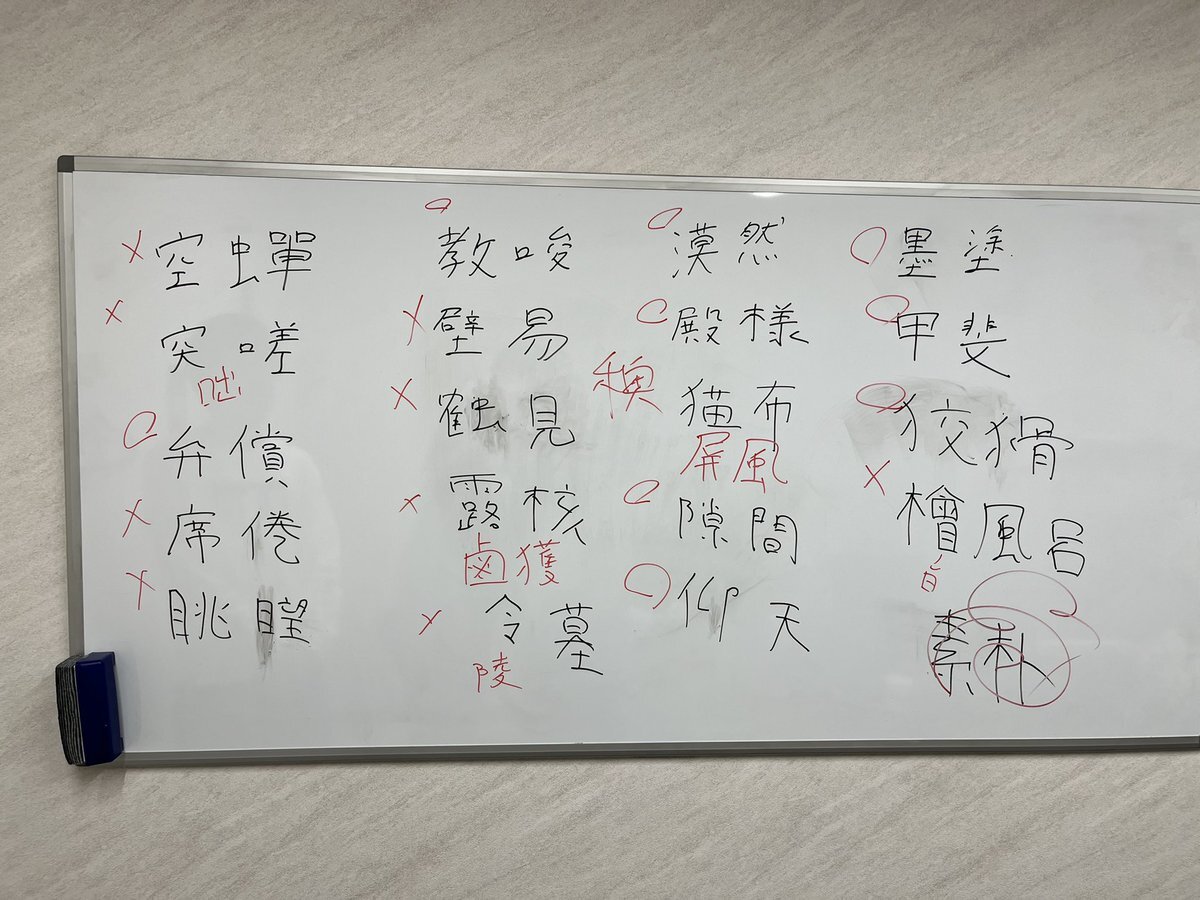 空蟬
突嗟
咄
弁償
席倦
眺望
教唆
壁易
見
露核
鹵獲
令墓
陵
漠然
殿様
猫布
屏風
隙間
仰天
墨塗
甲斐
狡猾
檜風呂
素朴